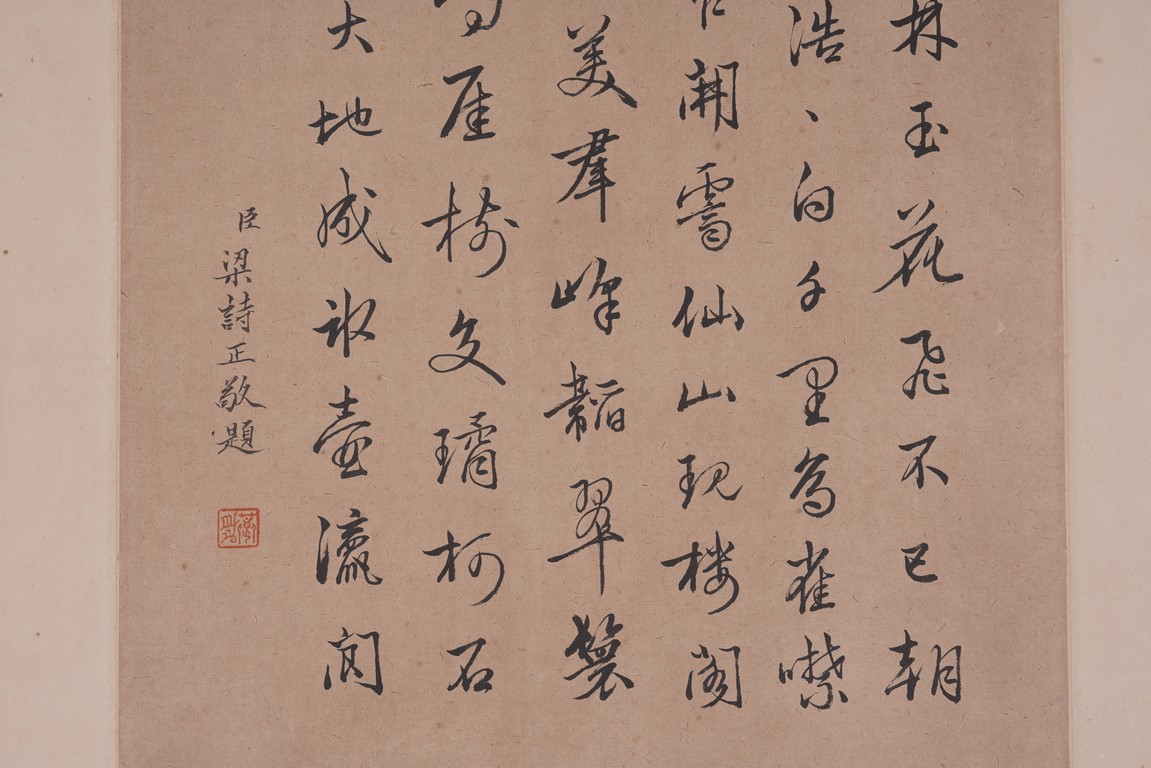 林玉花飛不已朝
浩、白千里鳥雀噤
開霽仙山現樓閣
美羣峰韜翠鬟
崖樹交璚柯石
大地成冰壺瀛閬
臣梁詩正敬題